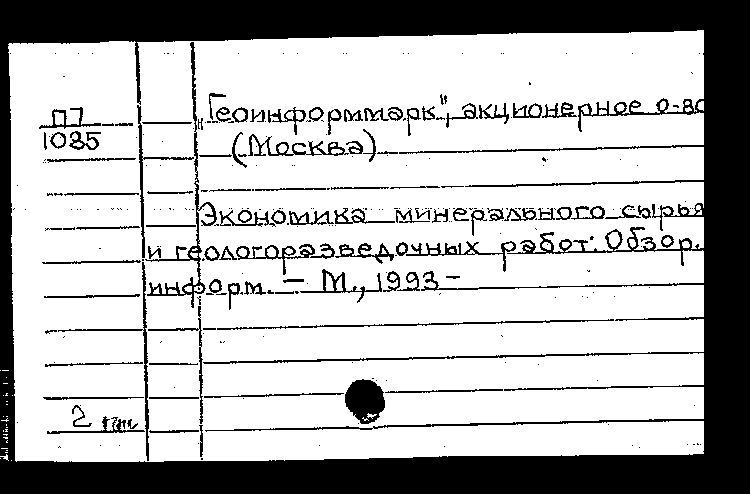 П7
1035
„Геоинформмарк", акционерное о-во
(Москва)
Экономика минерального сырья
и геологоразведочных работ: Обзор.
информ. — М., 1993 –
2